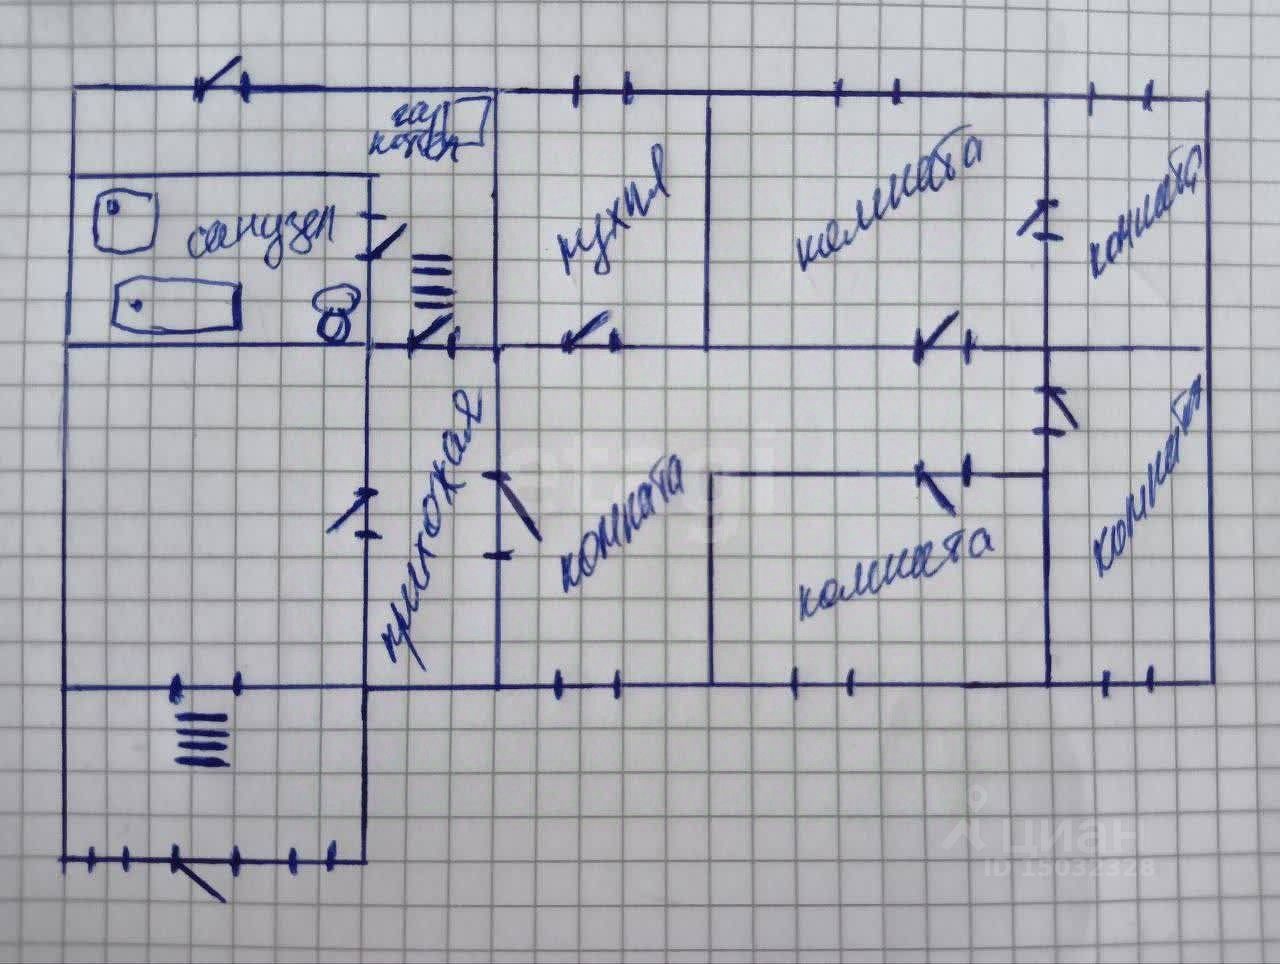 газ
котел
санузел
кухня
комната
комната
прихожая
комната
комната
комната
etagi
циан
ID 15032328